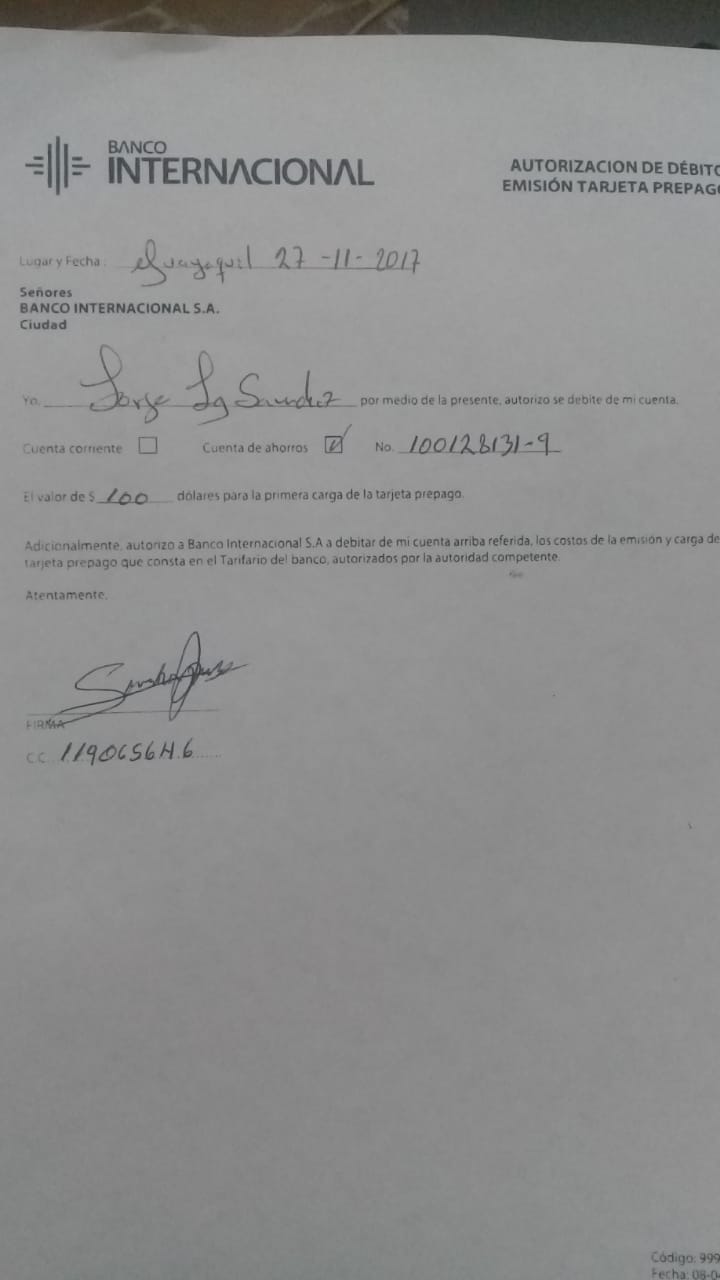 BANCO
INTERNACIONAL
AUTORIZACION DE DÉBITO
EMISIÓN TARJETA PREPAGO
Lugar y Fecha: Guayaquil 27-11-2017
Señores
BANCO INTERNACIONAL S.A.
Ciudad
Yo, Jorge por medio de la presente, autorizo se debite de mi cuenta.
Cuenta corriente Cuenta de ahorros No. 100128131-9
El valor de $ 100 dólares para la primera carga de la tarjeta prepago.
Adicionalmente, autorizo a Banco Internacional S.A a debitar de mi cuenta arriba referida, los costos de la emisión y carga de
tarjeta prepago que consta en el Tarifario del banco, autorizados por la autoridad competente.
Atentamente,
FIRMA
C.C.
Código: 999
Fecha: 08-0